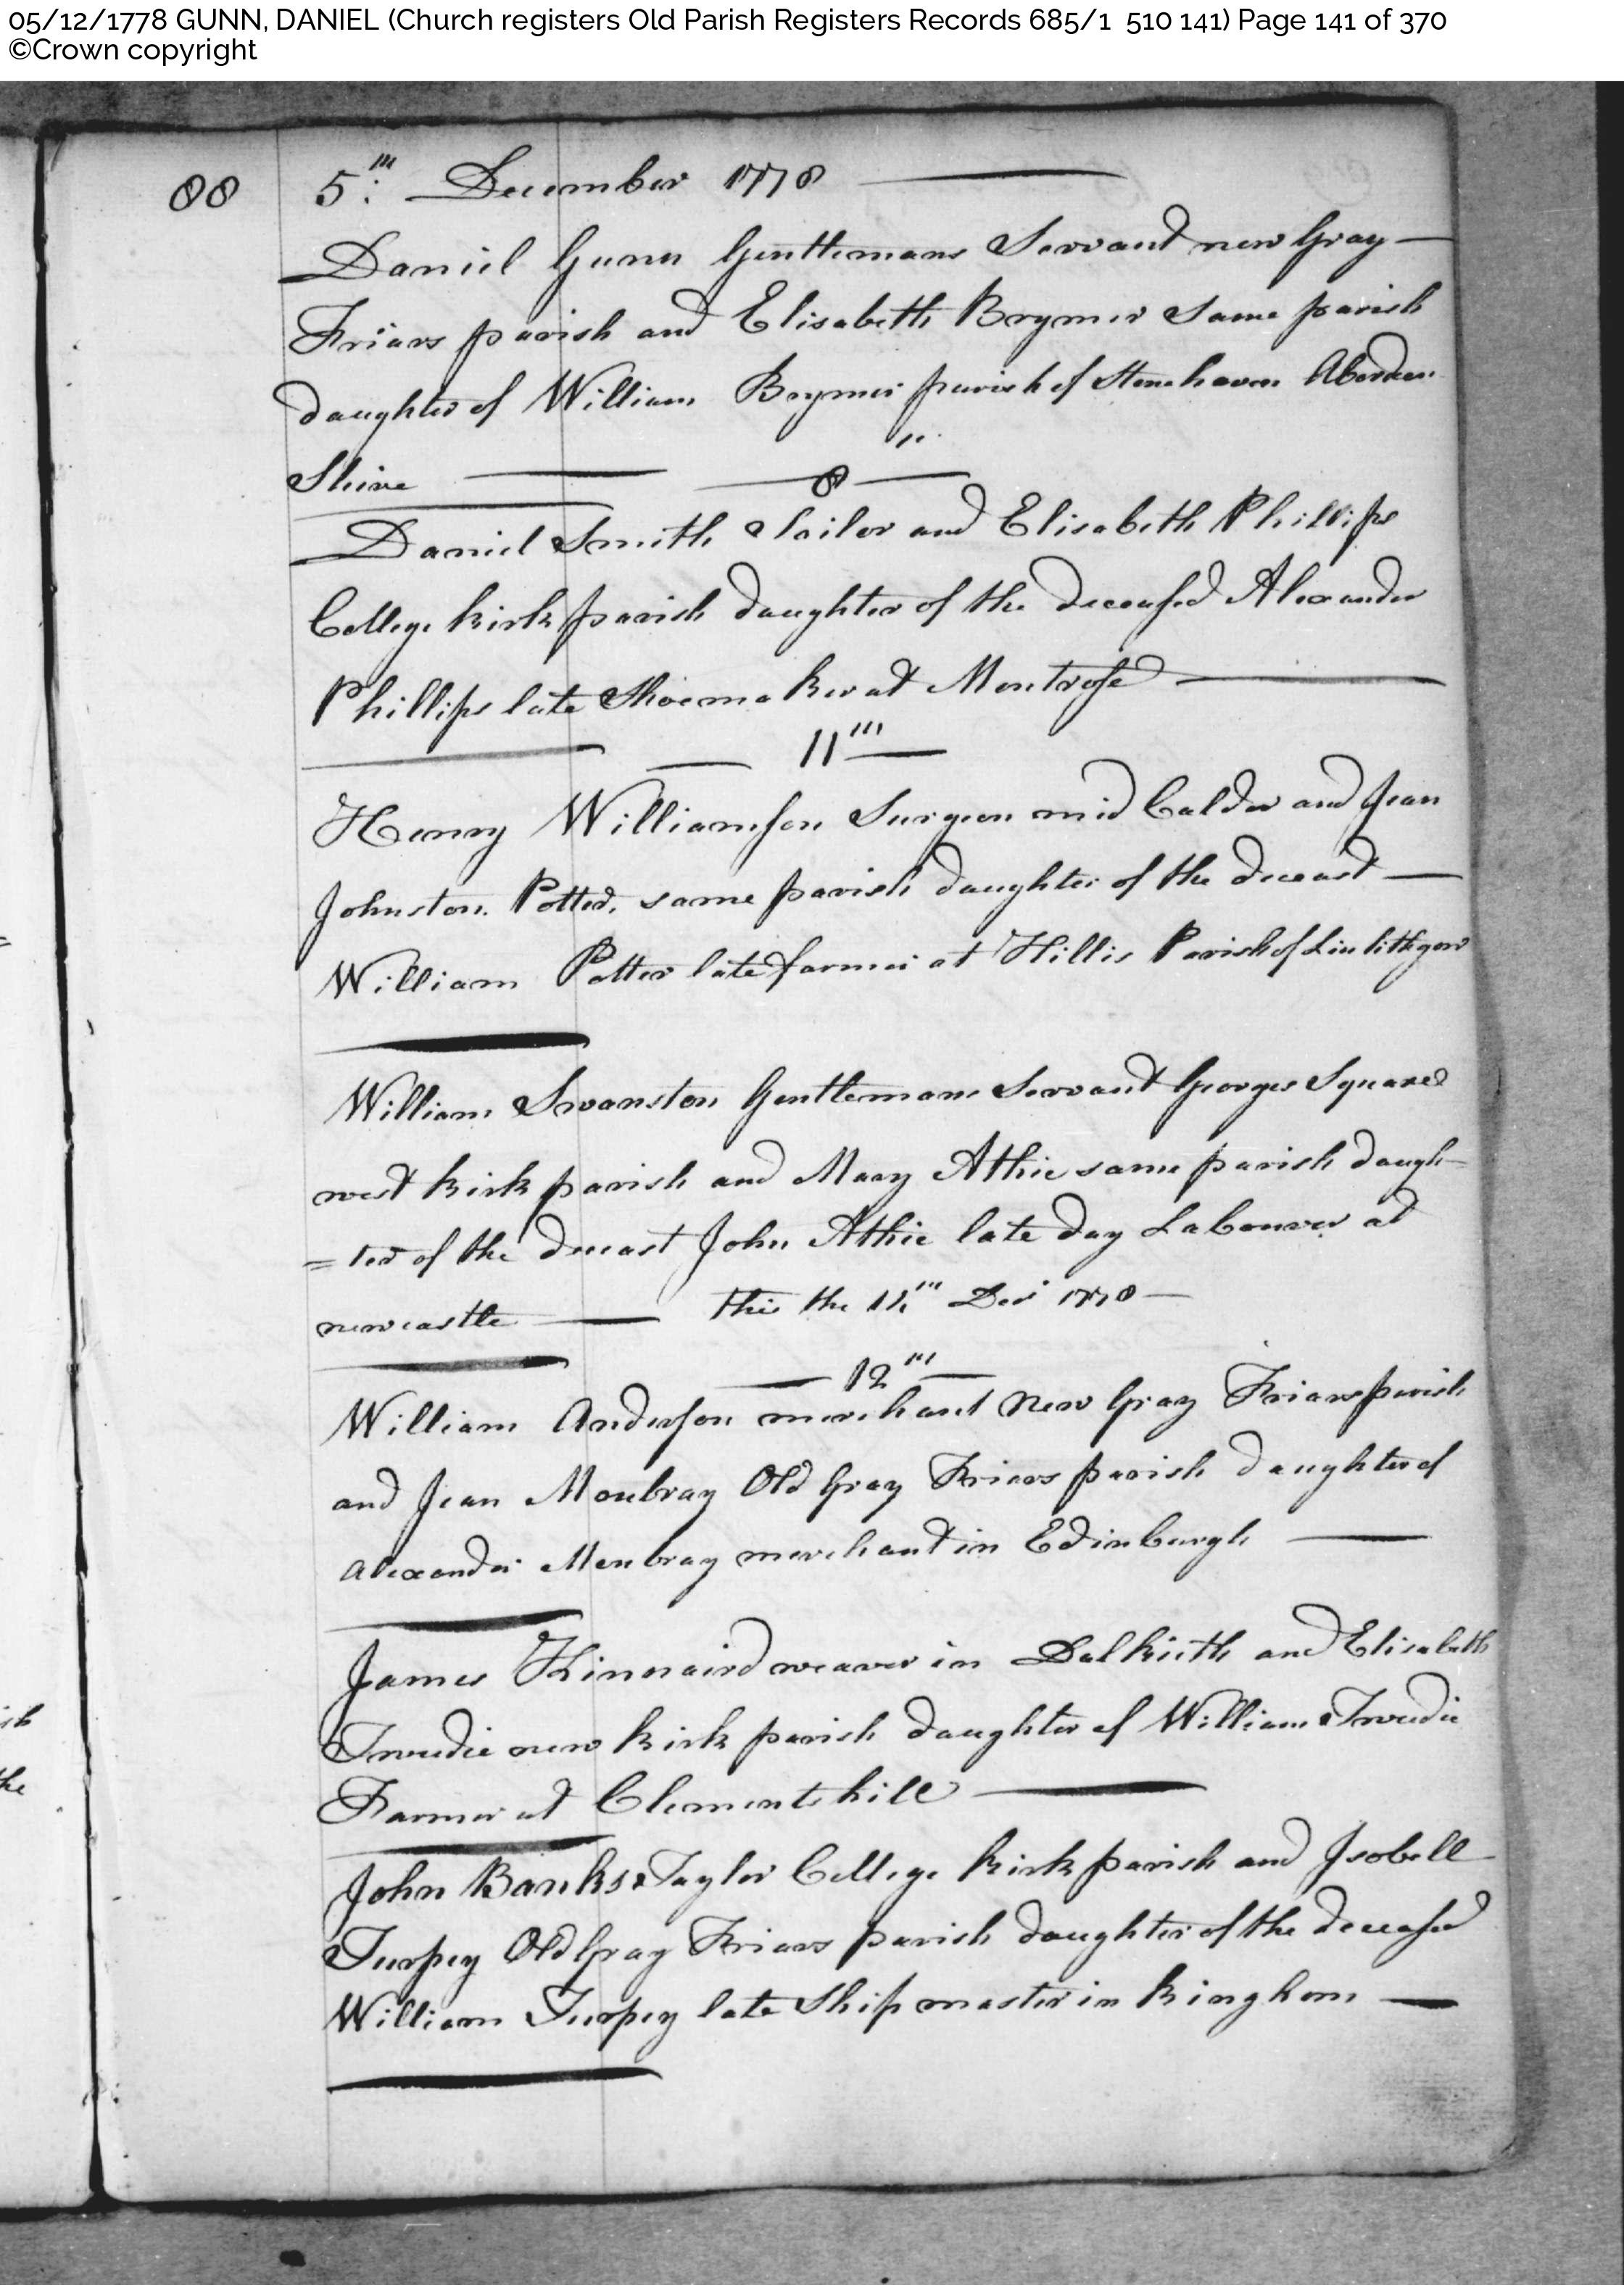 05/12/1778 GUNN, DANIEL (Church registers Old Parish Registers Records 685/1 510 141) Page 141 of 370
©Crown copyright
88
5th December 1778
Daniel Gunn Gentlemans Servant new Gray
Friars parish and Elisabeth Brymer Same parish
daughter of William Brymer parish of Stonehaven Aberdeen
Shire
8
Daniel Smith Sailor and Elisabeth Phillips
College kirk parish daughter of the deceased Alexander
Phillips late Shoemaker at Montrose
11th
Henry Williamson Surgeon mid Calder and Jean
Johnston Potter same parish daughter of the deceast
William Potter late farmer at Hillis Parish of Linlithgow
William Swanston Gentlemans Servant Georges Square
west kirk parish and Mary Athie same parish daugh
=ter of the deceast John Athie late day Labourer at
newcastle this the 11th Decr 1778
12th
William Anderson merchant New Gray Friars parish
and Jean Moubray Old Gray Friars parish daughter of
Alexander Moubray merchant in Edinburgh
James Kinnaird weaver in Dalkieth and Elisabeth
Tweedie new kirk parish daughter of William Tweedie
Farmer at Clementshill
John Banks Taylor College kirk parish and Isobell
Turpey Old Gray Friars parish daughter of the deceased
William Turpey late Ship master in kinghorn